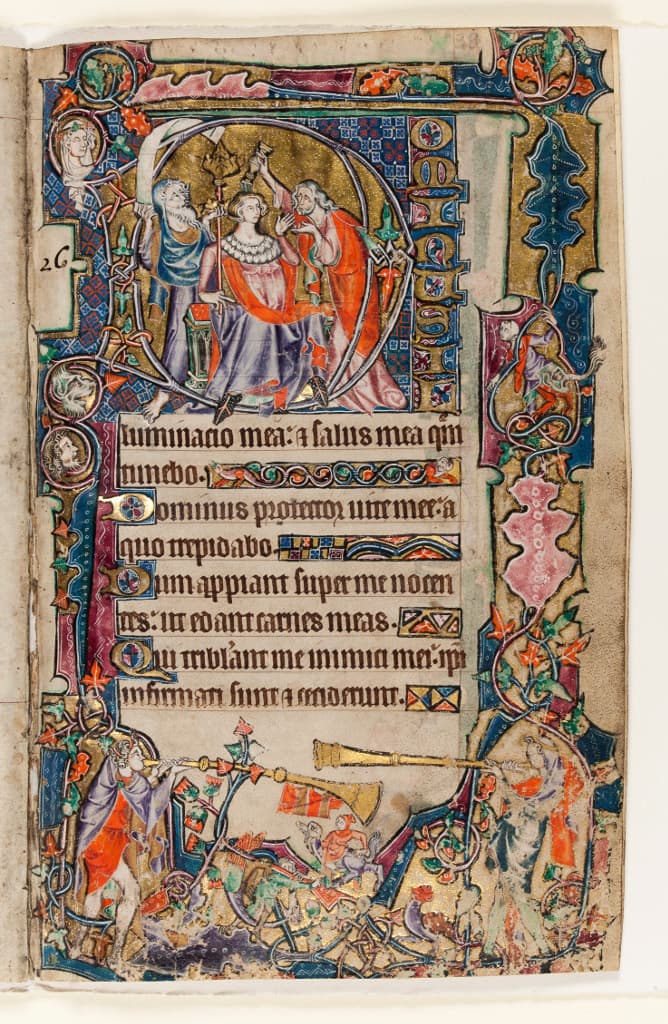 26
Dominus il
luminacio mea: ⁊ salus mea qm̄
timebo.
Dominus protector uite mee: a
quo trepidabo.
Dum appiant super me nocen
tes: ut edant carnes meas.
Qui tribl̄ant me inimici mei: ip̄i
infirmati sunt ⁊ ceciderunt.